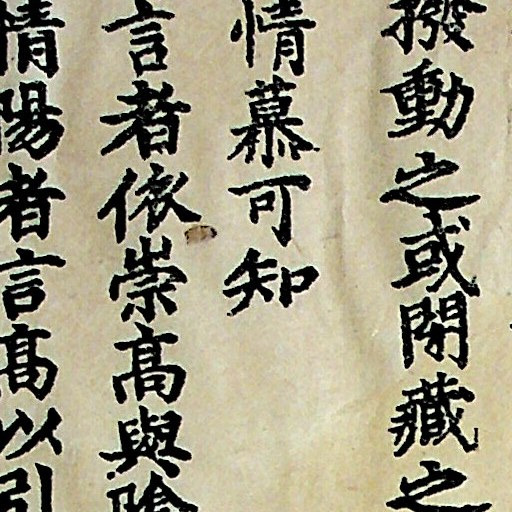 撥動之或閉藏之
情慕可知
言者依崇高與陰
情陽者言高以引